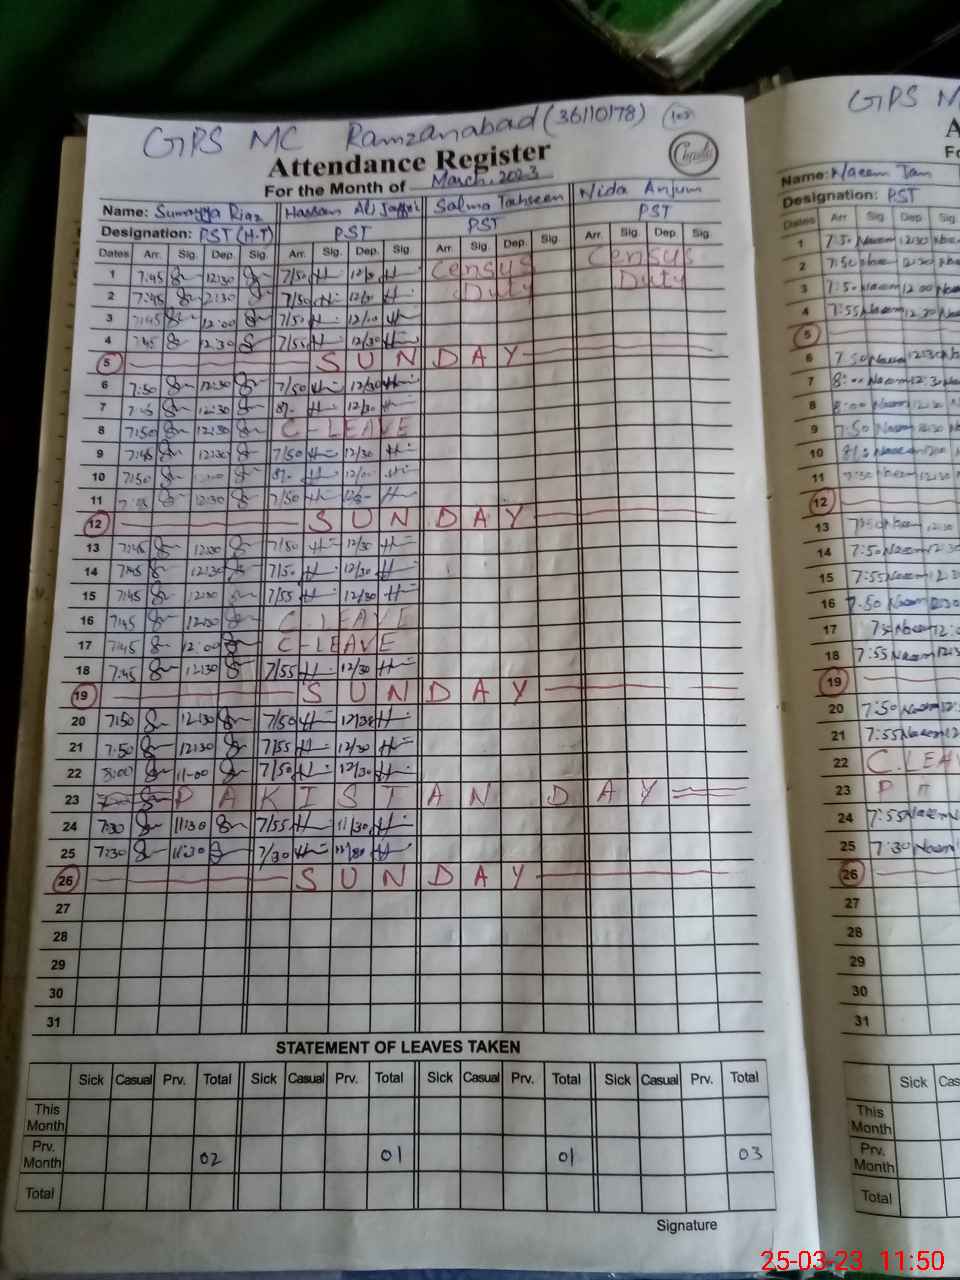 GPS MC Ramzanabad (36110178)
Attendance Register
For the Month of March, 2023
Name: Sumayya Riaz Hassan Ali Salma Tahseen Nida Anjum
Designation: PST (H-T) PST PST PST
Dates Arr. Sig. Dep. Sig. Arr. Sig. Dep. Sig. Arr. Sig. Dep. Sig. Arr. Sig. Dep. Sig.
1 7:45 12:30 7/50 12/30 Census Census
2 7:45 12:30 7/50 Duty Duty
3 7:45 12:00 7/50 12/00
4 7:45 12:30 7/55 12/30
5 SUNDAY
6 7:50 12:30 7/50 12/30
7 12:30 8/- 12/30
8 7:50 12:30 C-LEAVE
9 7:45 12:30 7/50 12/30
10 7:50 8/- 12/00
11 12:30 7/50
12 SUNDAY
13 7:45 12:30 7/50 12/30
14 7:45 12:30 7/50 12/30
15 7:45 12:30 7/55 12/30
16 7:45 12:30 C-LEAVE
17 7:45 12:00 C-LEAVE
18 7:45 12:30 7/55 12/30
19 SUNDAY
20 7:50 12:30 7/50 12/30
21 7:50 12:30 7/55 12/30
22 8:00 11-00 7/50 12/30
23 PAKISTAN DAY
24 7:30 11:30 7/55 11/30
25 7:30 11:30 7/30
26 SUNDAY
27
28
29
30
31
STATEMENT OF LEAVES TAKEN
Sick Casual Prv. Total Sick Casual Prv. Total Sick Casual Prv. Total Sick Casual Prv. Total
This Month
Prv. Month 02 01 01 03
Total
Signature
GPS M
A
Name: Naeem Jan
Designation: PST
Dates Arr. Sig. Dep. Sig.
1 7:50 Naeem 12:30
2 7:50 Naeem 12:30
3 7:50 Naeem 12:00
4 7:55 Naeem 12:30
5
6 7:50 Naeem 12:30
7 8:00 Naeem 12:30
8 8:00 Naeem 12:30
9 7:50 Naeem 12:30
10 Naeem
11 7:50 Naeem 12:30
12
13 7:50 Naeem 12:30
14 7:50 Naeem 12:30
15 7:55 Naeem 12:3
16 7:50 Naeem 12:30
17 Naeem
18 7:55 Naeem 12:3
19
20 7:50 Naeem 12:
21 7:55 Naeem 12
22 C.LEAV
23 P
24 7:55 Naeem
25 7:30 Naeem
26
27
28
29
30
31
Sick Cas
This Month
Prv. Month
Total
25-03-23 11:50